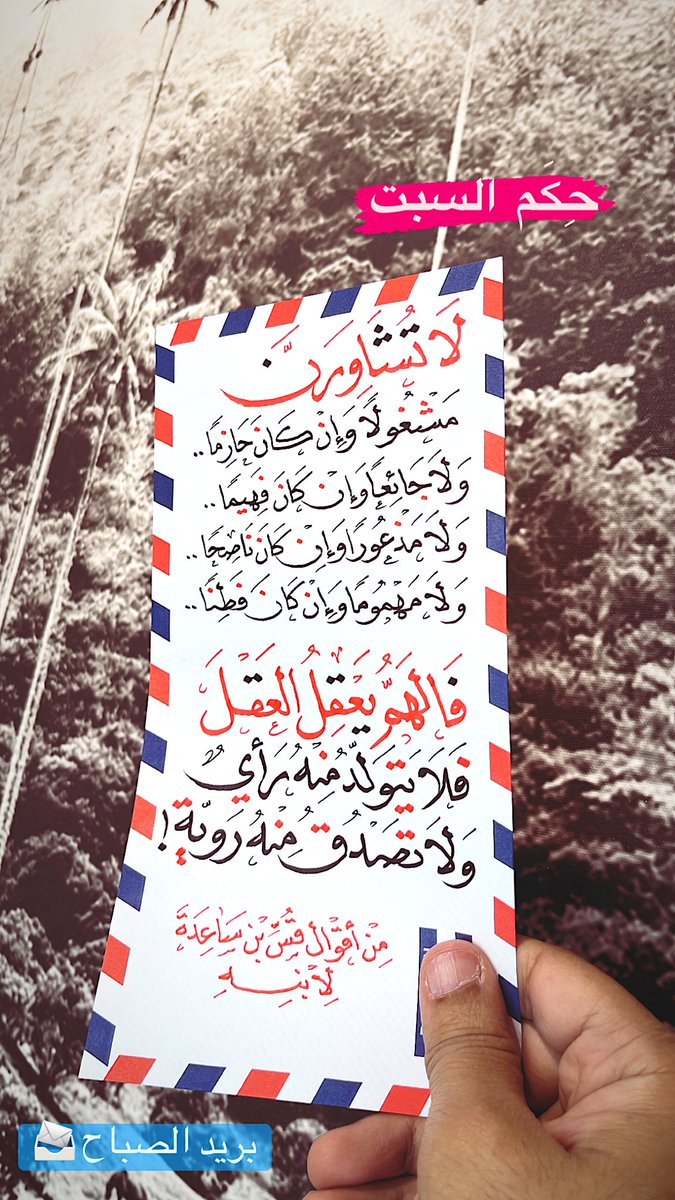 حِكَم السبت
لَا تُشَاوِرَنَّ
مَشْغُولًا وَإِنْ كَانَ حَازِمًا..
وَلَا جَائِعًا وَإِنْ كَانَ فَهِيمًا..
وَلَا مَذْعُورًا وَإِنْ كَانَ نَاصِحًا..
وَلَا مَهْمُومًا وَإِنْ كَانَ فَطِنًا..
فَالهَمُّ يَعْقِلُ العَقْلَ
فَلَا يَتَوَلَّدُ مِنْهُ رَأْيٌ
وَلَا تَصْدُقُ مِنْهُ رَوِيَّةٌ!
مِنْ أَقْوَالِ قُسِّ بْنِ سَاعِدَةَ
لِابْنِهِ
بريد الصباح